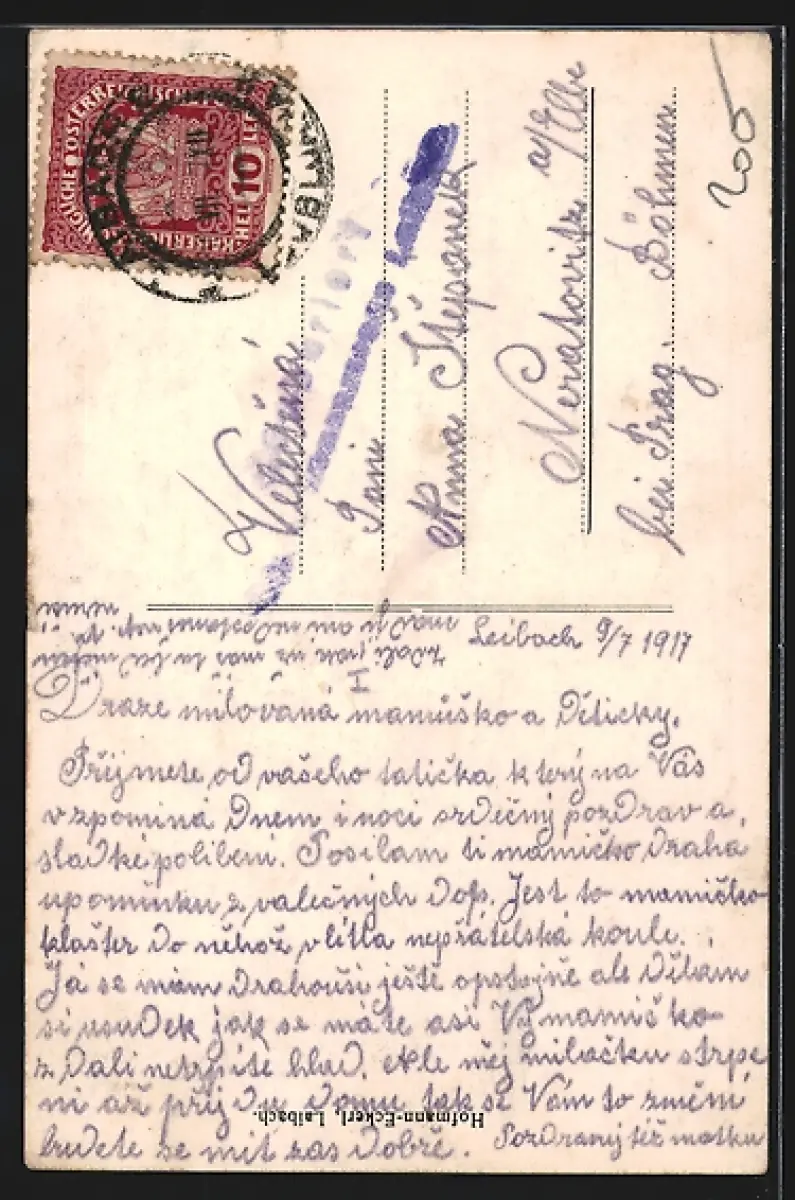 KAISERLICHE KÖNIGLICHE ÖSTERREICHISCHE POST
10 HELLER
Velectěná
Paní
Anna Štěpanek
Neratovitz a/Elbe
bei Prag. Böhmen
200
Leibach 9/7 1917
I
Draze milovaná mamuško a Dětičky.
Přijmete od vašeho tatička který na Vás
vzpomíná Dnem i noci srdečný pozdrav a
sladké polibeni. Posilam ti mamičko Drahá
upomínku z valečných Dob. Jest to mamičko
klašter do něhož vlítla nepřátelská koule.
Já se mám Drahouši ještě obstojně ale Dělam
si usudek jak se máte asi Vy mamičko
zdali netrpíte hlad. Ale měj milačku strpe
ni až přijdu Domu tak se Vám to změní
budete se mít zas Dobře. Pozdravuj též matku
Hofmann-Eckerl, Laibach.